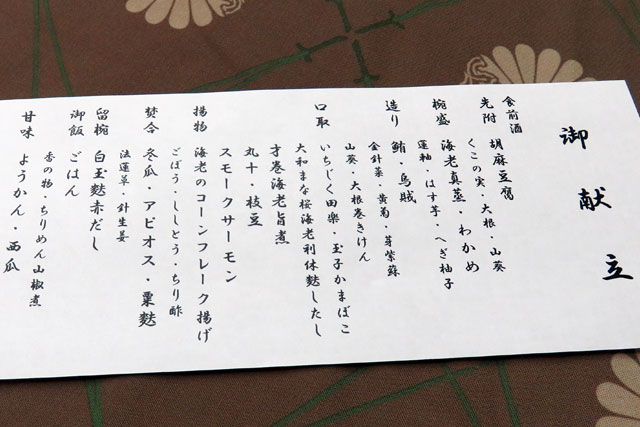 御献立
食前酒
先附 胡麻豆腐
くこの実・大根・山葵
椀盛 海老真蒸・わかめ
蓮軸・はす芋・へぎ柚子
造り 鮪・烏賊
金針菜・黄菊・芽紫蘇
山葵・大根巻きけん
口取 いちじく田楽・玉子かまぼこ
大和まな桜海老利休麩したし
才巻海老旨煮
丸十・枝豆
スモークサーモン
揚物 海老のコーンフレーク揚げ
ごぼう・ししとう・ちり酢
焚合 冬瓜・アピオス・粟麩
法蓮草・針生姜
留椀 白玉麩赤だし
御飯 ごはん
香の物・ちりめん山椒煮
甘味 ようかん・西瓜